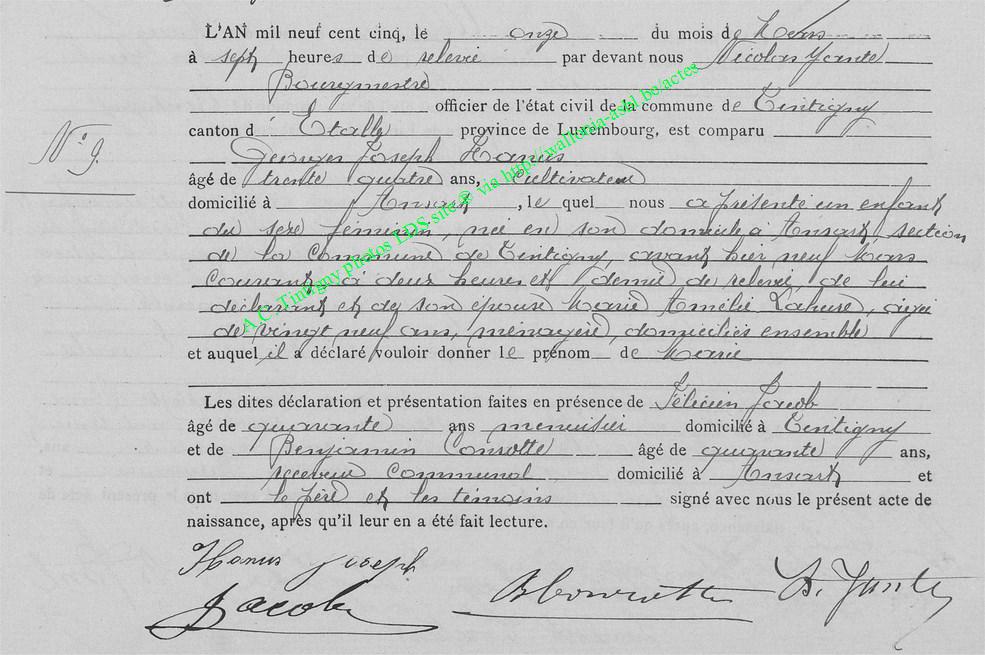 L'AN mil neuf cent cinq, le onze du mois de Mars
à sept heures de relevée par devant nous Nicolas Yante
Bourgmestre
officier de l'état civil de la commune de Tintigny
canton d' Etalle province de Luxembourg, est comparu
Georges Joseph Hanus
N° 9.
âgé de trente quatre ans, Cultivateur
domicilié à Ansart, le quel nous a présenté un enfant
du sexe féminin, née en son domicile à Ansart, section
de la Commune de Tintigny, avant hier neuf Mars
Courant, à deux heures et demie de relevée, de lui
déclarant et de son épouse Marie Amélie Lahure, âgée
de vingt neuf ans, ménagère, domiciliés ensemble
et auquel il a déclaré vouloir donner le prénom de Marie
Les dites déclaration et présentation faites en présence de Félicien Jacob
âgé de quarante ans menuisier domicilié à Tintigny
et de Benjamin Conrotte âgé de quarante ans,
receveur Communal domicilié à Ansart et
ont le père et les témoins signé avec nous le présent acte de
naissance, après qu'il leur en a été fait lecture.
Hanus Joseph
Jacob
B Conrotte
N. Yante
A.C. Tintigny photos LDS site © via http://wallonia-asbl.be/actes